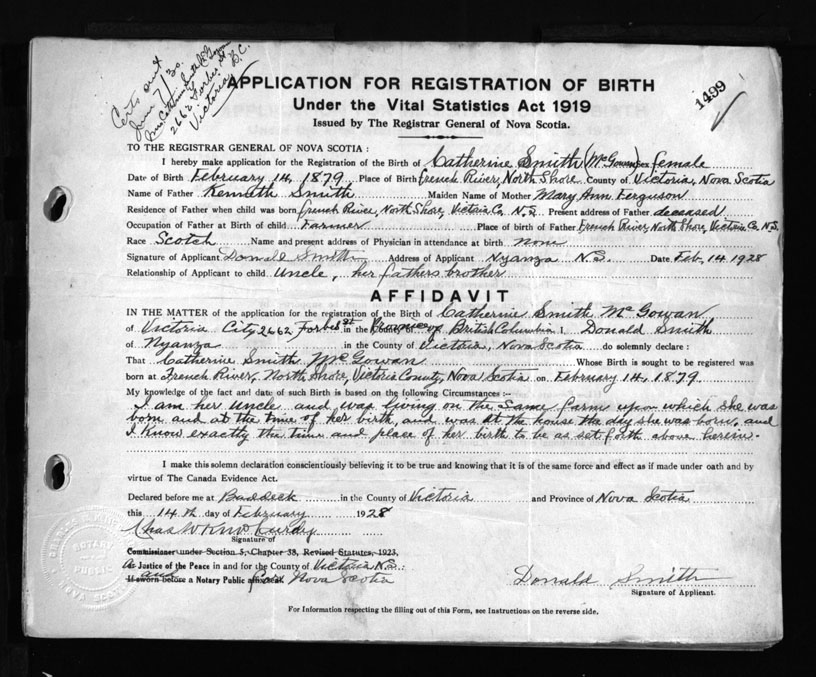 Certs out
June 7/30
Mrs. Catherine Smith McGowan
2662 Forbes St
Victoria, B.C.
1499
APPLICATION FOR REGISTRATION OF BIRTH
Under the Vital Statistics Act 1919
Issued by The Registrar General of Nova Scotia.
TO THE REGISTRAR GENERAL OF NOVA SCOTIA :
I hereby make application for the Registration of the Birth of Catherine Smith (McGowan) Sex female
Date of Birth February 14, 1879 Place of Birth French River, North Shore County of Victoria, Nova Scotia
Name of Father Kenneth Smith Maiden Name of Mother Mary Ann Ferguson
Residence of Father when child was born French River, North Shore, Victoria Co. N.S. Present address of Father deceased
Occupation of Father at Birth of child Farmer Place of birth of Father French River, North Shore, Victoria Co N.S.
Race Scotch Name and present address of Physician in attendance at birth none
Signature of Applicant Donald Smith Address of Applicant Nyanza N.S. Date Feb, 14, 1928
Relationship of Applicant to child Uncle, her fathers brother
AFFIDAVIT
IN THE MATTER of the application for the registration of the Birth of Catherine Smith McGowan
of Victoria City, 2662 Forbes St in the Province of British Columbia I, Donald Smith
of Nyanza in the County of Victoria, Nova Scotia do solemnly declare :
That Catherine Smith McGowan Whose Birth is sought to be registered was
born at French River, North Shore, Victoria County, Nova Scotia on February 14, 1879.
My knowledge of the fact and date of such Birth is based on the following Circumstances :—
I am her Uncle and was living on the same farm upon which she was
born and at the time of her birth, and was at the house the day she was born, and
I know exactly the time and place of her birth to be as set forth above herein.
I make this solemn declaration conscientiously believing it to be true and knowing that it is of the same force and effect as if made under oath and by
virtue of The Canada Evidence Act.
Declared before me at Baddeck in the County of Victoria and Province of Nova Scotia
this 14th day of February 1928
Chas W K McCurdy
Signature of
Commissioner under Section 5, Chapter 38, Revised Statutes, 1923,
As Justice of the Peace in and for the County of Victoria N.S.:
If sworn before a Notary Public affix seal. and for Nova Scotia
Donald Smith
Signature of Applicant.
NOTARY
PUBLIC
NOVA SCOTIA
For Information respecting the filling out of this Form, see Instructions on the reverse side.